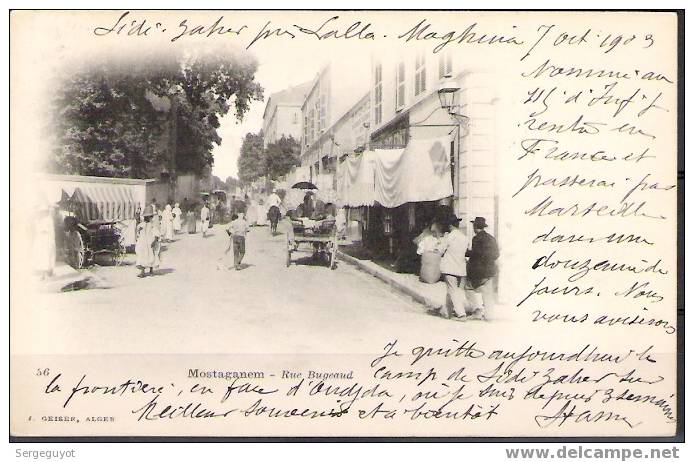 Sidi-Zaher près Lalla-Maghnia 7 Oct 1903
Nommé au
d'Inf je
rentre en
France et
passerai par
Marseille
dans une
douzaine de
jours. Nous
vous aviserons
56 Mostaganem - Rue Bugeaud
Je quitte aujourd'hui le
camp de Sidi Zaher sur
la frontière, en face d'Oudjda, où je suis depuis 3 semaines
Meilleur souvenir et à bientôt
J. GEISER, ALGER
Sergeguyot
www.delcampe.net